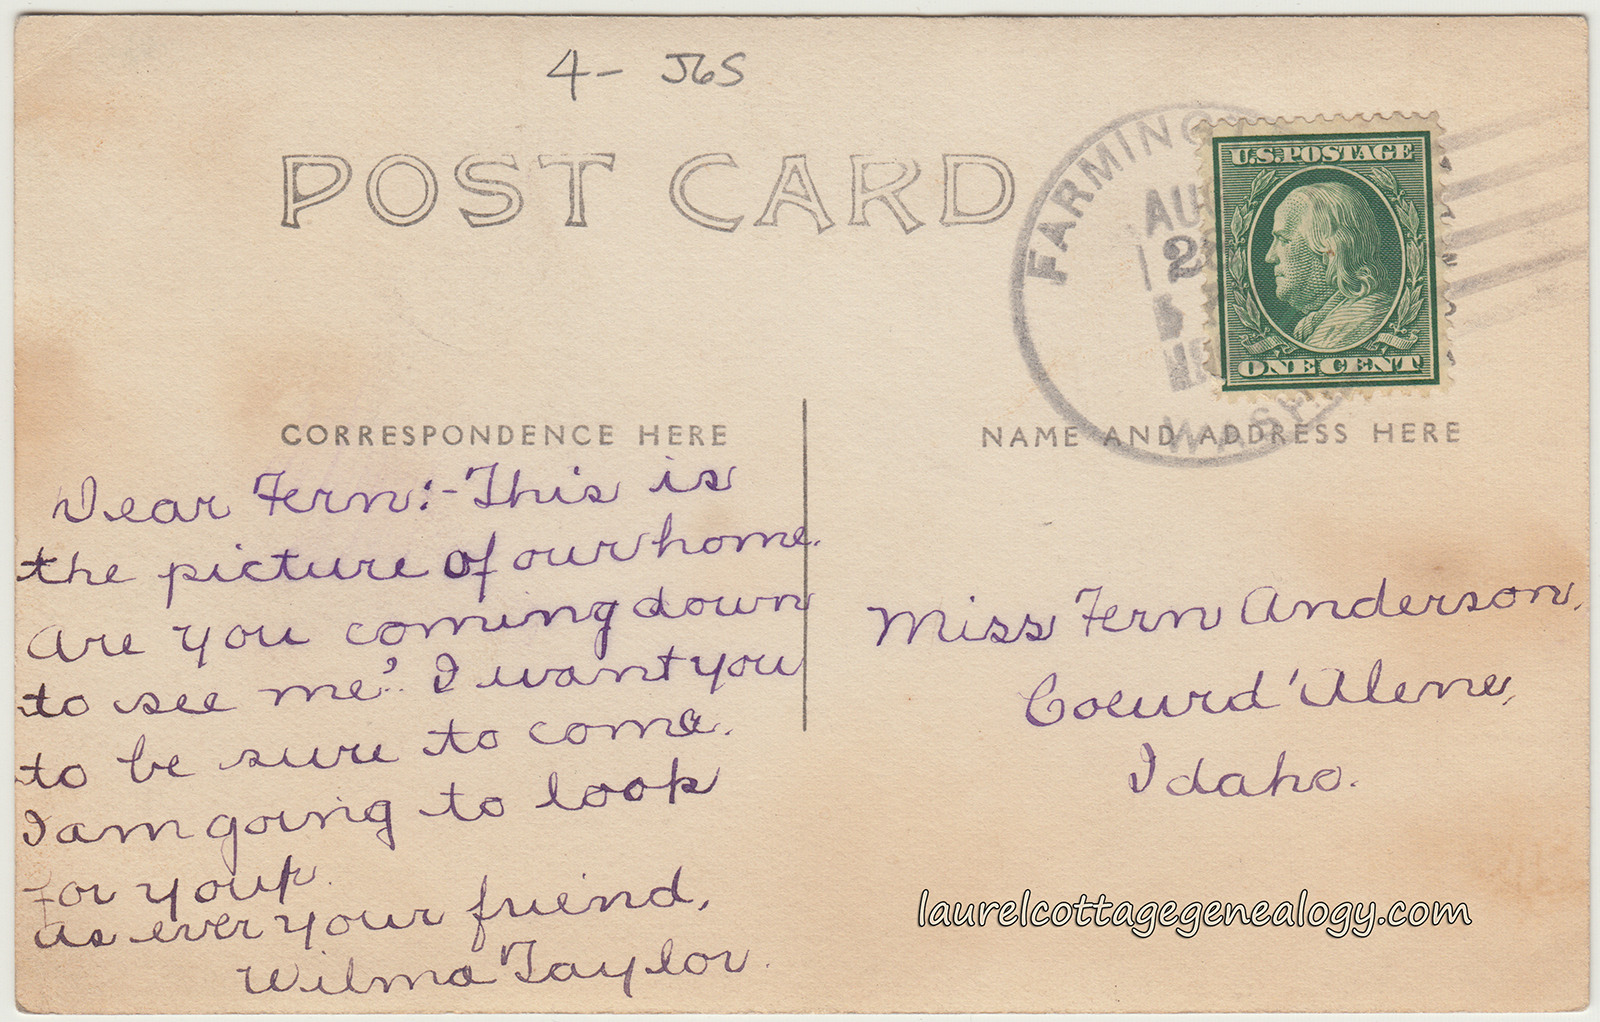 4- J6S
POST CARD
FARMING
AU
2
WASH
U.S. POSTAGE
ONE CENT
CORRESPONDENCE HERE
NAME AND ADDRESS HERE
Dear Fern:- This is
the picture of our home.
Are you coming down
to see me? I want you
to be sure to come.
I am going to look
for you.
As ever your friend,
Wilma Taylor.
Miss Fern Anderson,
Coeurd 'Alene,
Idaho.
laurelcottagegenealogy.com